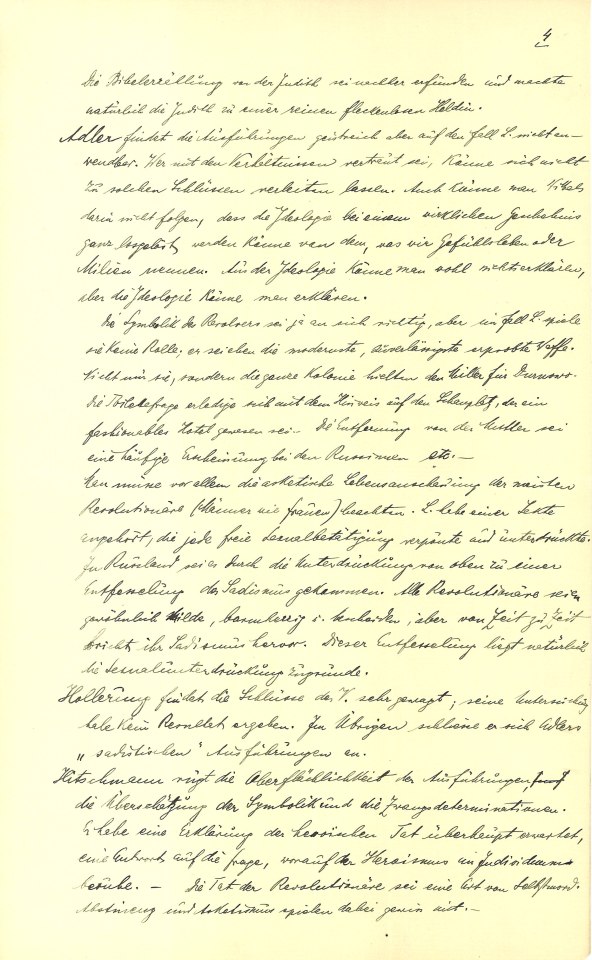 4
Die Bibelerzählung von der Judith sei nachher erfunden und machte
natürlich die Judith zu einer reinen fleckenlosen Heldin.
Adler findet die Ausführungen geistreich aber auf den Fall L. nicht an-
wendbar. Wer mit den Verhältnissen vertraut sei, könne sich nicht
zu solchen Schlüssen verleiten lassen. Auch könne man
darin nicht folgen, dass die Ideologie bei einem wirklichen Geschehnis
ganz losgelöst werden könne von dem, was wir Gefühlsleben oder
Milieu nennen. Aus der Ideologie könne man wohl nichts erklären,
aber die Ideologie könne man erklären.
Die Symbolik des Revolvers sei ja an sich richtig, aber im Fall L. spiele
sie keine Rolle; er sei eben die modernste, zuverlässigste erprobte Waffe.
Nicht nur sie, sondern die ganze Kolonie hielten den Müller für Durnowo.
Die erledige sich mit dem Hinweis auf den Schauplatz, der ein
fashionables Hotel gewesen sei. Die Entfernung von der Mutter sei
eine häufige Erscheinung bei den Russinnen etc. –
Man müsse vor allem die asketische Lebensanschauung der meisten
Revolutionäre (Männer wie Frauen) beachten. L. habe einer Sekte
angehört, die jede freie Sexualbetätigung verpönte und unterdrückte.
In Russland sei es durch die Unterdrückung von oben zu einer
Entfesselung des Sadismus gekommen. Alle Revolutionäre seien
gewöhnlich milde, barmherzig u. bescheiden, aber von Zeit zu Zeit
bricht ihr Sadismus hervor. Dieser Entfesselung liegt natürlich
die Sexualunterdrückung zugrunde.
Hollerung findet die Schlüsse des V. sehr gewagt; seine Untersuchung
habe kein Resultat ergeben. Im Übrigen schliesse er sich Adlers
„sadistischen" Ausführungen an.
Hitschmann rügt die Oberflächlichkeit der Ausführungen,
die Überschätzung der Symbolik und die Zwangsdeterminationen.
Er habe eine Erklärung der heroischen Tat überhaupt erwartet,
eine Antwort auf die Frage, worauf der Heroismus im Individuum
beruhe. – Die Tat der Revolutionäre sei eine Art von Selbstmord.
Abstinenz und Asketismus spielen dabei gewiss mit. –